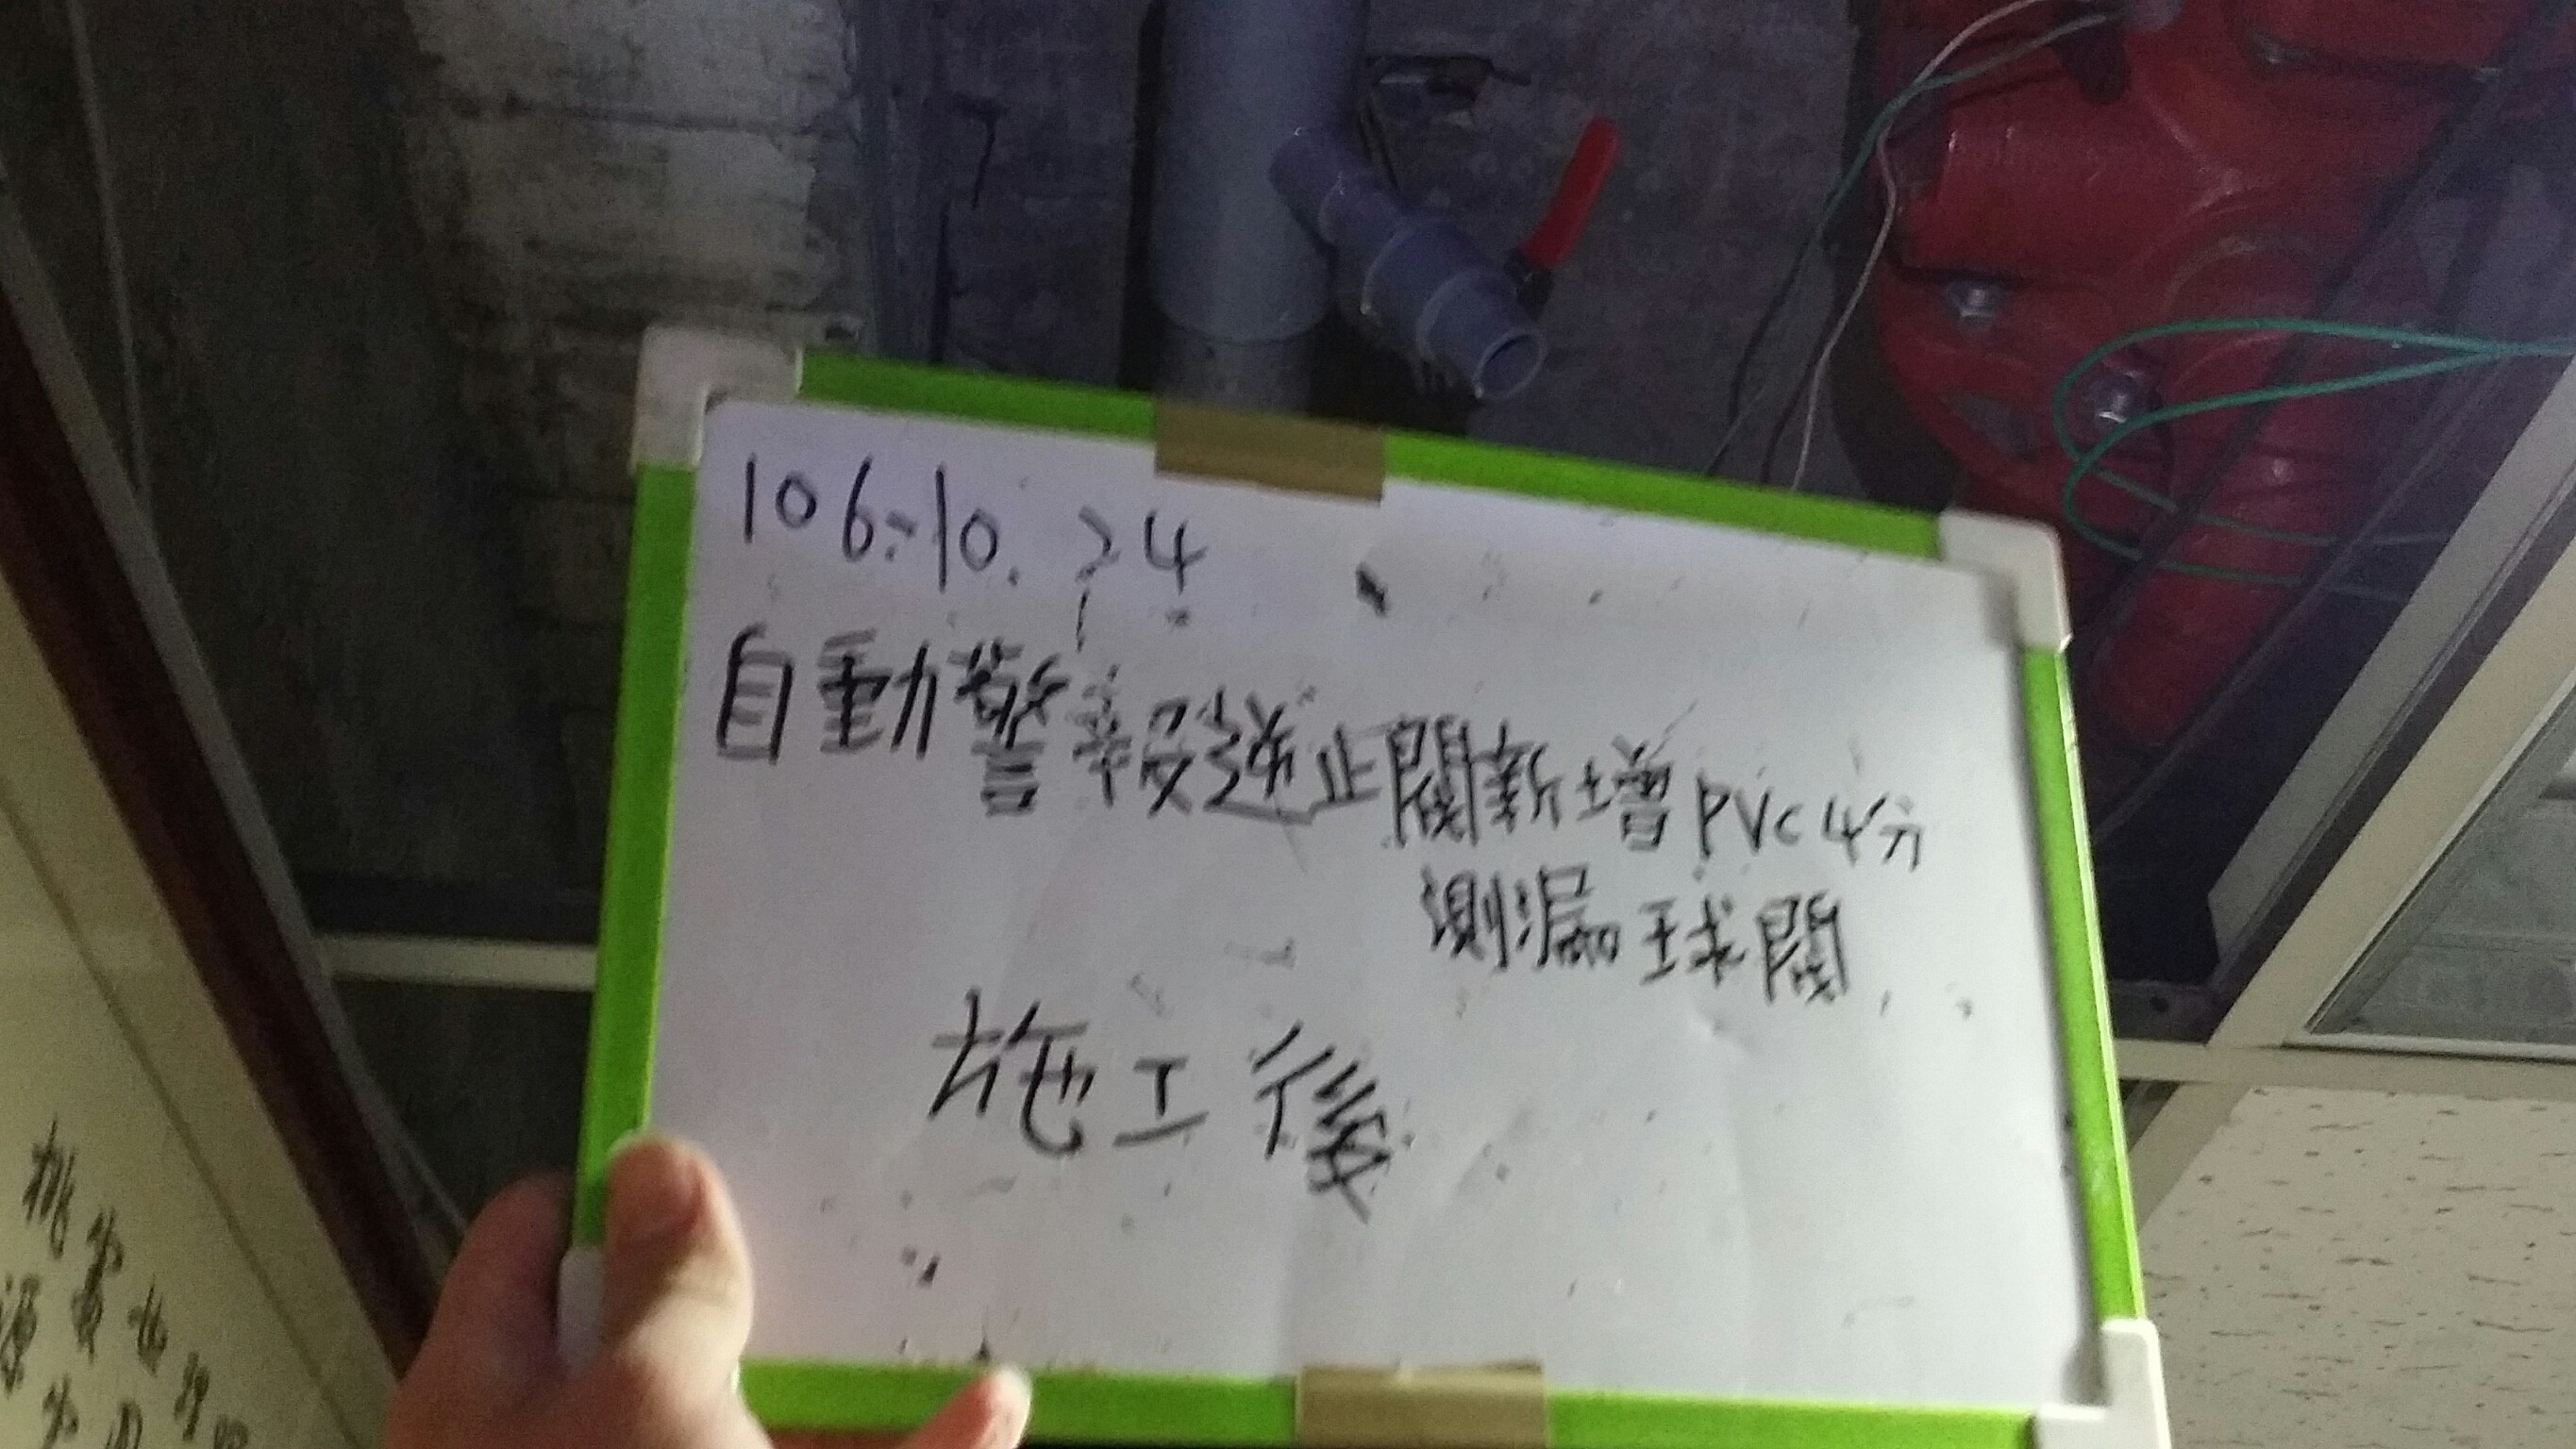 106.10.24
自動警報逆止閥新增PVC4分
測漏球閥
施工後